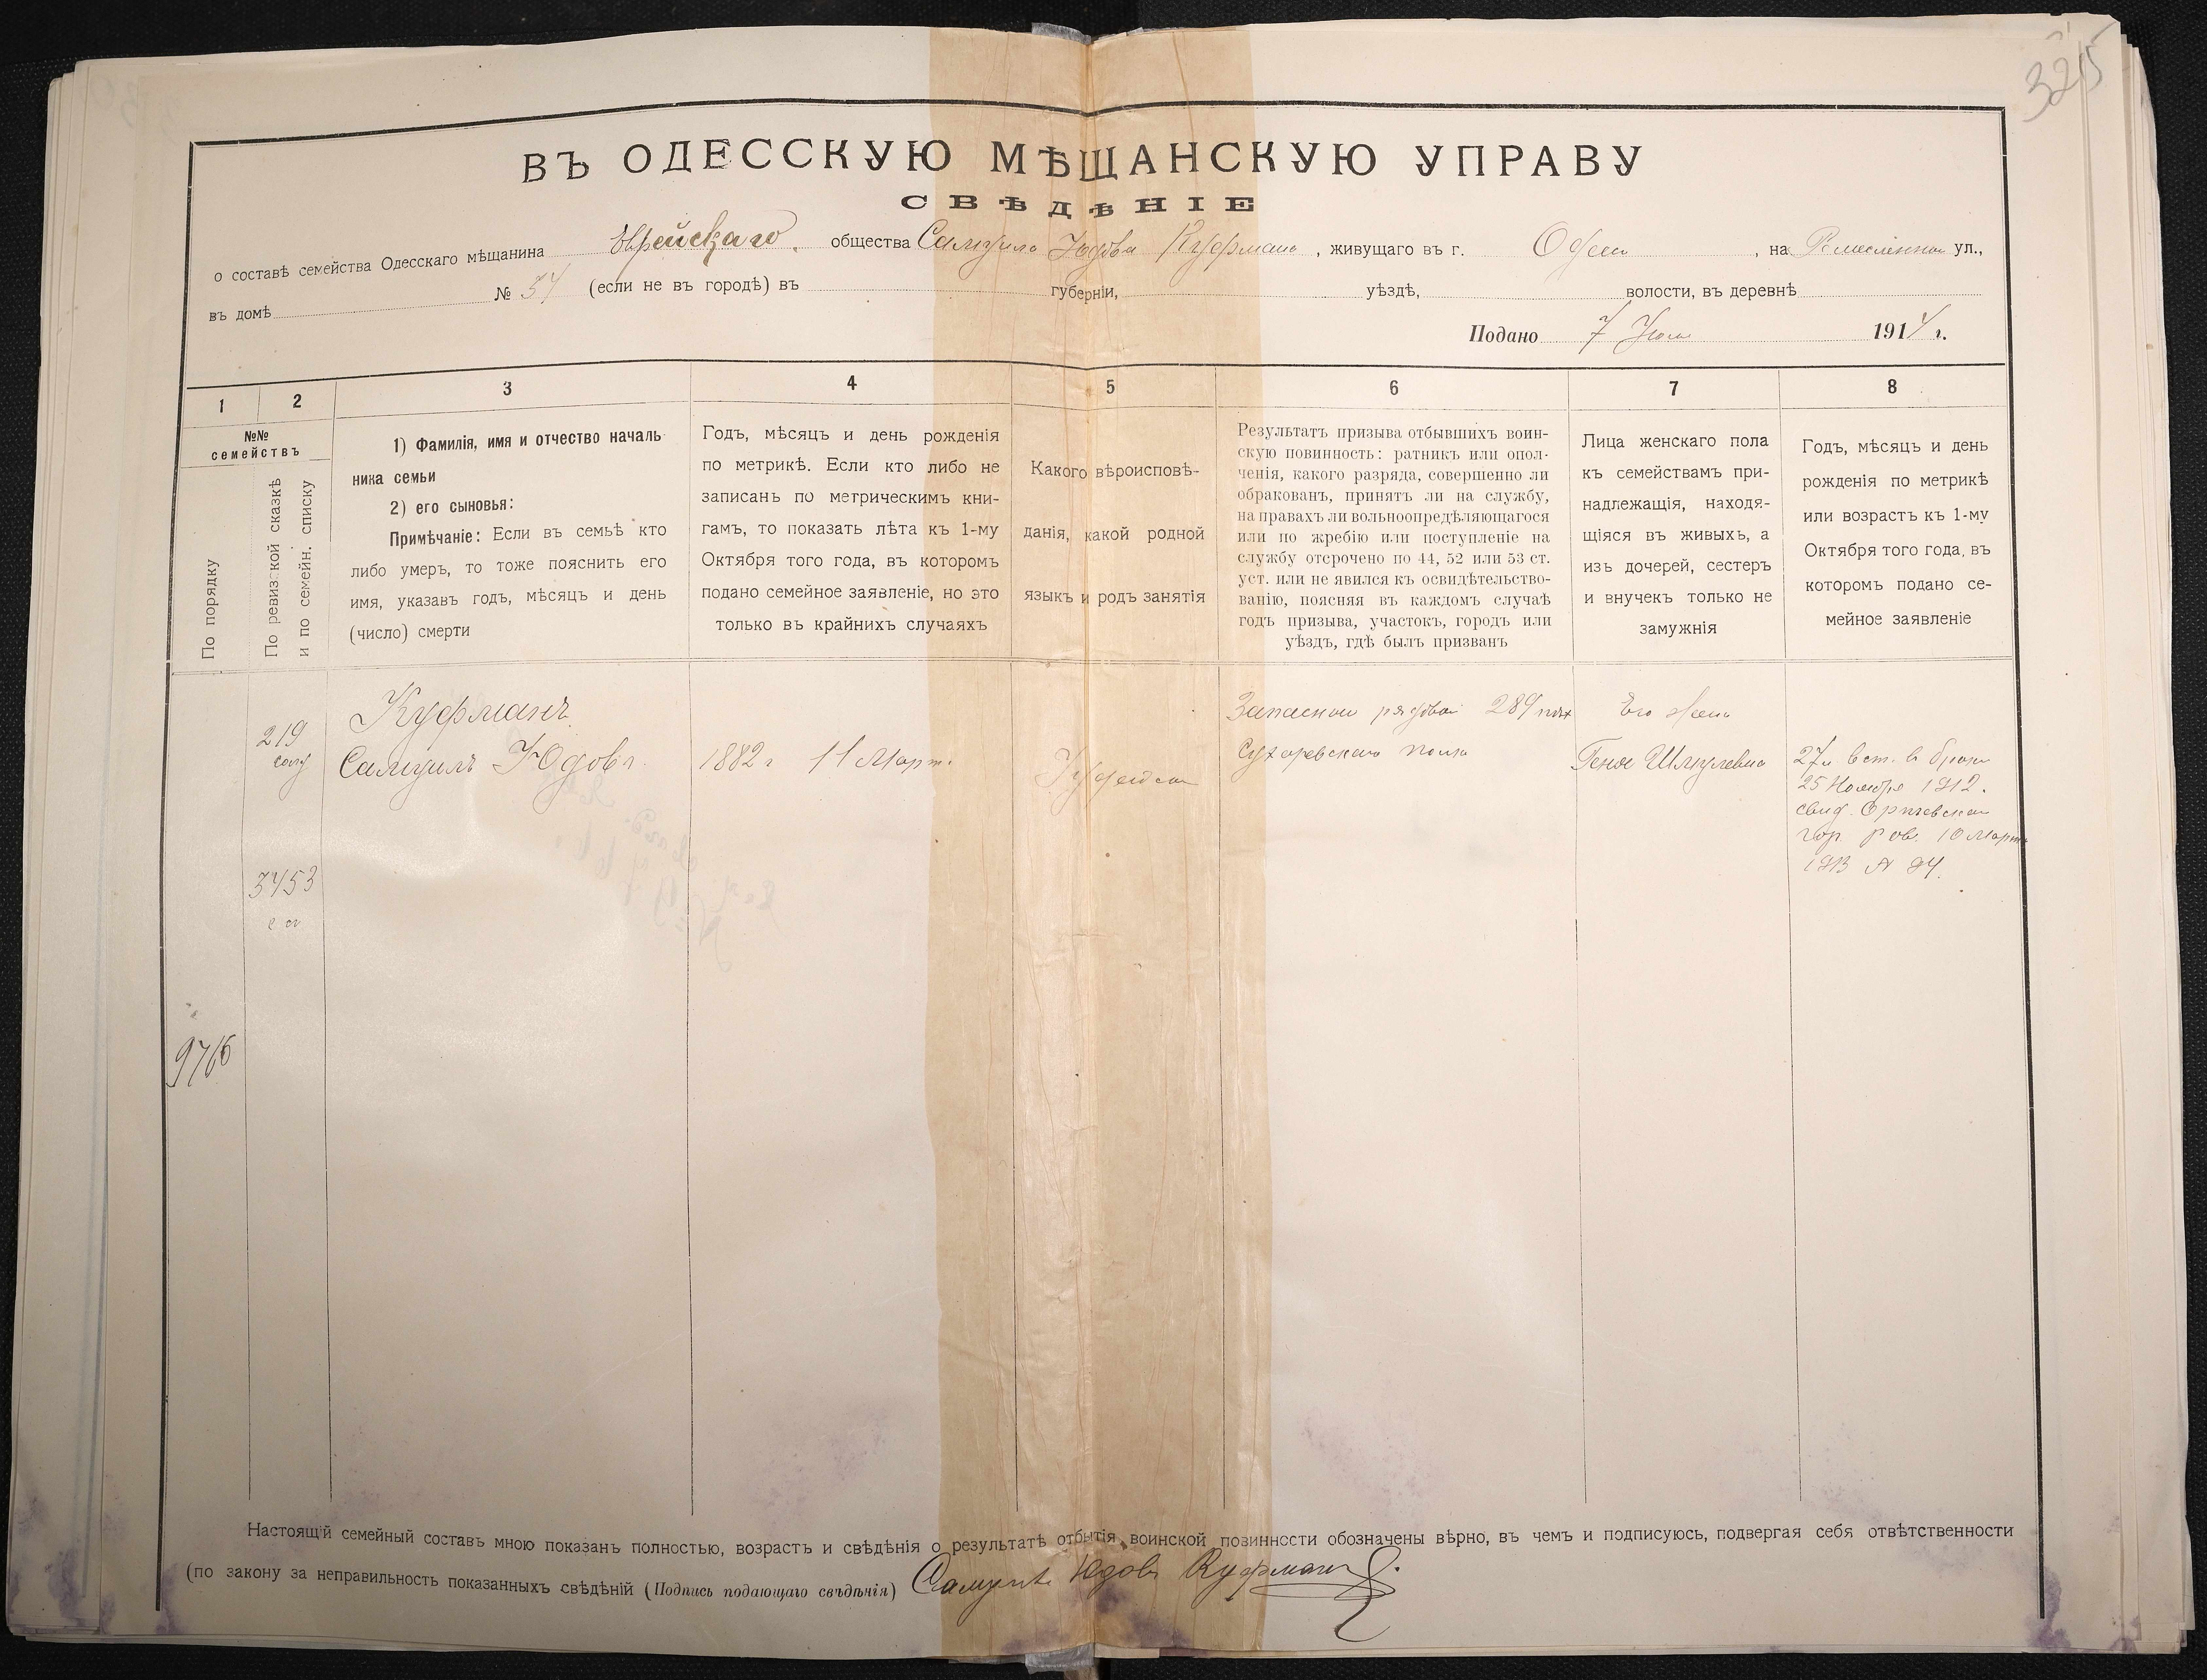 325
ВЪ ОДЕССКУЮ МѢЩАНСКУЮ УПРАВУ
СВѢДѢНІЕ
о составѣ семейства Одесскаго мѣщанина Еврейскаго общества Самуила Юдова Куфмана, живущаго въ г. Одессе, на Ремесленной ул.,
въ домѣ № 54 (если не въ городѣ) въ губерніи, уѣздѣ, волости, въ деревнѣ
Подано 7 1914 г.
1 2 3 4 5 6 7 8
№№ семействъ
По порядку
По ревизской сказкѣ
и по семейн. списку
1) Фамилія, имя и отчество началь
ника семьи
2) его сыновья:
Примѣчаніе: Если въ семьѣ кто
либо умеръ, то тоже пояснить его
имя, указавъ годъ, мѣсяцъ и день
(число) смерти
Годъ, мѣсяцъ и день рожденія
по метрикѣ. Если кто либо не
записанъ по метрическимъ кни-
гамъ, то показать лѣта къ 1-му
Октября того года, въ которомъ
подано семейное заявленіе, но это
только въ крайнихъ случаяхъ
Какого вѣроисповѣ-
данія, какой родной
языкъ и родъ занятія
Результатъ призыва отбывшихъ воин-
скую повинность: ратникъ или опол-
ченія, какого разряда, совершенно ли
обракованъ, принятъ ли на службу,
на правахъ ли вольноопредѣляющагося
или по жребію или поступленіе на
службу отсрочено по 44, 52 или 53 ст.
уст. или не явился къ освидѣтельство-
ванію, поясняя въ каждомъ случаѣ
годъ призыва, участокъ, городъ или
уѣздъ, гдѣ былъ призванъ
Лица женскаго пола
къ семействамъ при-
надлежащія, находя-
щіяся въ живыхъ, а
изъ дочерей, сестеръ
и внучекъ только не
замужнія
Годъ, мѣсяцъ и день
рожденія по метрикѣ
или возрастъ къ 1-му
Октября того года, въ
которомъ подано се-
мейное заявленіе
219
Куфманъ
Самуилъ Юдовъ
1882 г 11 Март.
Иудейскаго
Запасной рядовой 289 пѣх
полка
Его жена
Геня Шмулевна
27 л вст. в бракъ
25 Ноября 1912.
свид. Оргѣевскаго
гор. рав. 10 Марта
1913 № 24.
3453
9766
Настоящій семейный составъ мною показанъ полностью, возрастъ и свѣдѣнія о результатѣ отбытія воинской повинности обозначены вѣрно, въ чемъ и подписуюсь, подвергая себя отвѣтственности
(по закону за неправильность показанныхъ свѣдѣній (Подпись подающаго свѣдѣнія) Самуилъ Юдовъ Куфманъ